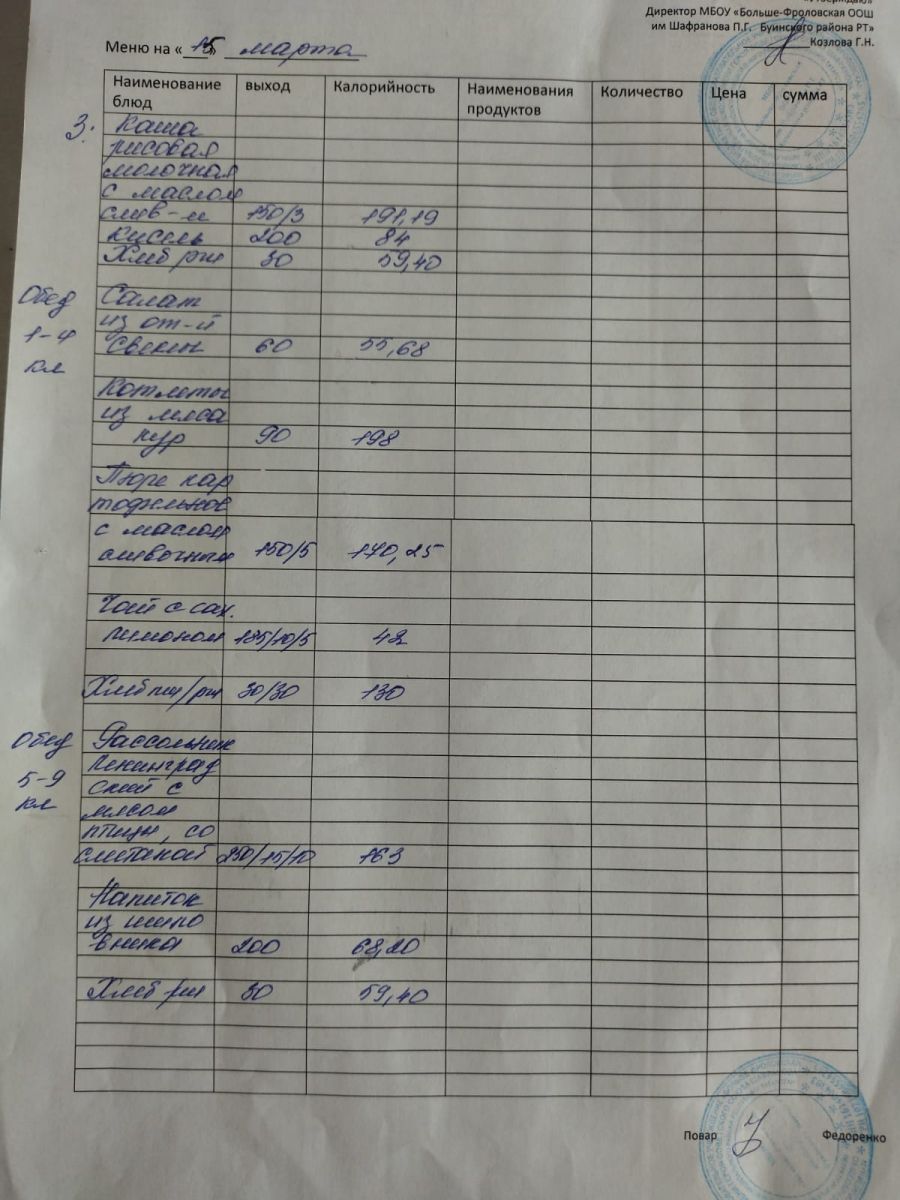 «Утверждаю»
Директор МБОУ «Больше-Фроловская ООШ
им Шафранова П.Г. Буинского района РТ»
Козлова Г.Н.
Меню на « 15 » марта
Наименование блюд выход Калорийность Наименования продуктов Количество Цена сумма
З. Каша
рисовая
молочная
с маслом
слив-м 150/3 191,19
Кисель 200 84
Хлеб рж 30 59,40
Обед Салат
из от-й
1-4 свеклы 60 55,68
кл
Котлеты
из мяса
кур 90 198
Пюре кар
тофельное
с маслом
сливочным 150/5 170,25
Чай с сах.
лимоном 185/10/5 42
Хлеб пш/рж 30/30 130
Обед Рассольник
Ленинград
5-9 ский с
кл мясом
птицы, со
сметаной 250/15/10 163
Напиток
из шипо
вника 200 68,20
Хлеб рж 30 59,40
Повар Федоренко